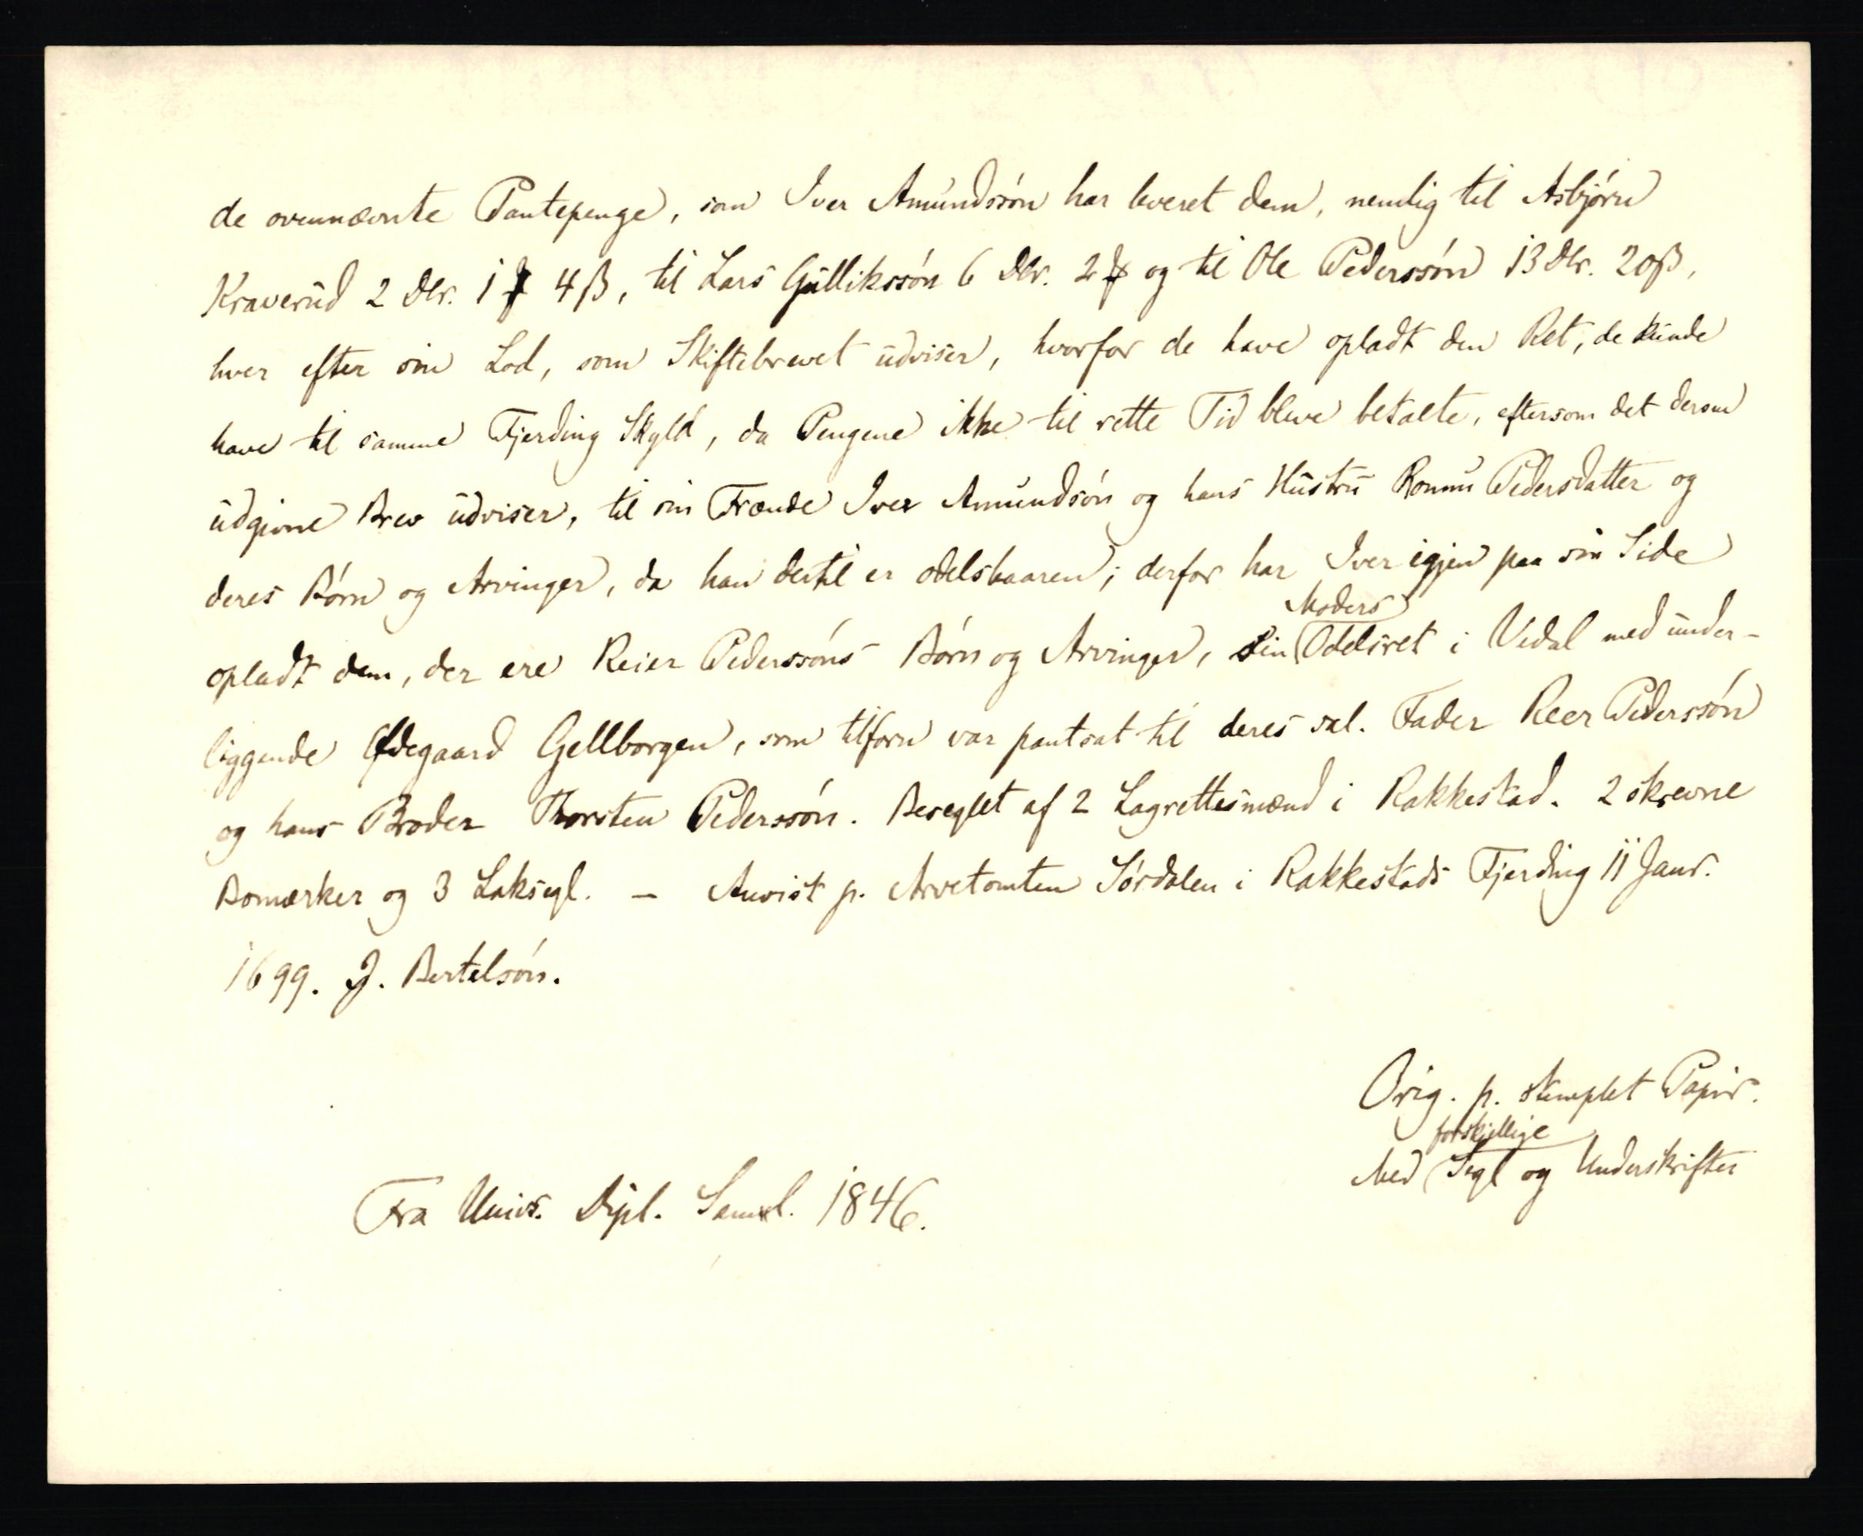 de ovennævnte Pantepenge, som Iver Amundssøn har leveret dem, nemlig til Asbjørn
Kraverud 2 Dlr. 1 ꝑ 4 ß, til Lars Gullikssøn 6 Dlr. 2 ꝑ og til Ole Pederssøn 13 Dlr. 20 ß,
hver efter sin Lod, som Skiftebrevet udviser, hvorfor de have opladt den Ret, de kunde
have til samme Fjerding Skyld, da Pengene ikke til rette Tid bleve betalte, eftersom det derom
udgivne Brev udviser, til sin Frænde Iver Amundsøn og hans Hustru Ronnu Pedersdatter og
deres Børn og Arvinger, da han dertil er odelsbaaren; derfor har Iver igjen paa sin Side
opladt dem, der ere Reier Pederssøns Børn og Arvinger, sin Moders Odelsret i Vedal med under-
liggende Ødegaard Gellborgen, som tilforn var pantsat til deres sal. Fader Reer Pederssøn
og hans Broder Thorsten Pederssøn. Beseglet af 2 Lagrettesmænd i Rakkestad. 2 skrevne
Bomærker og 3 Laksegl. — Anvist p. Arvetomten Sørdalen i Rakkestads Fjerding 11 Janr.
1699. J. Bertelsøn.
Orig. p. stemplet Papir.
Med forskjellige Segl og Underskrifter
Fra Univs. Dipl. Saml. 1846.